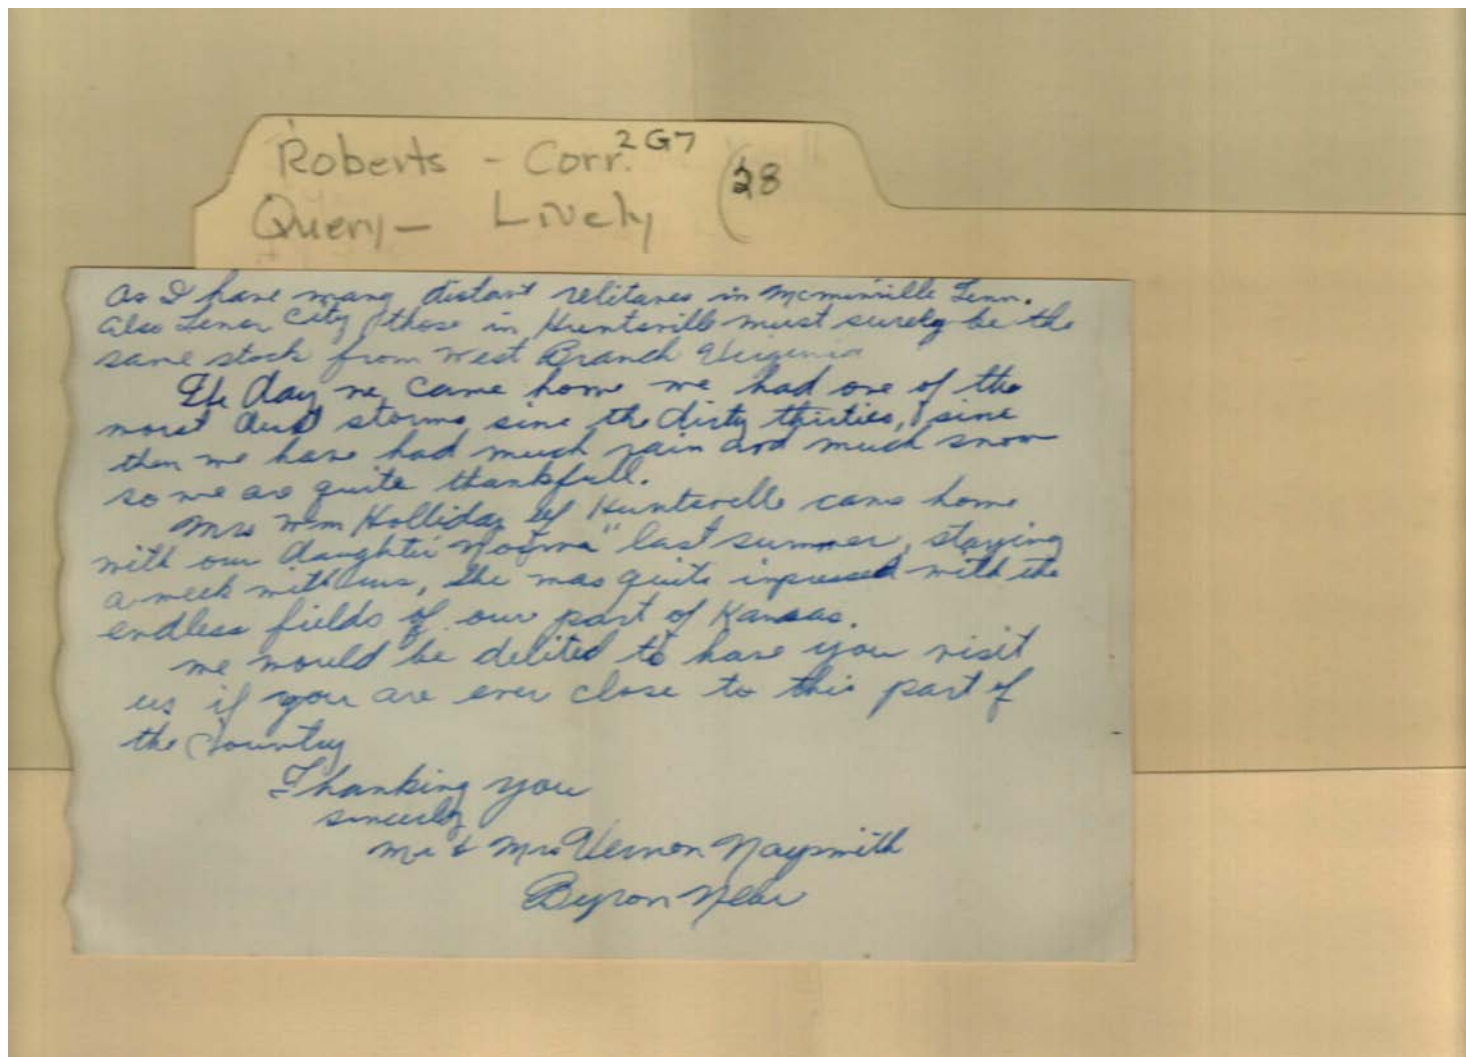 2G7
Roberts - Corr. (28
Query - Lively
as I have many distant relitaves in McMinnville Tenn.
also Lenor City, those in Huntsville must surely be the
same stock from West Branch Virginia
The day we came home we had one of the
worst dust storms since the dirty thirties, since
then we have had much rain and much snow
so we are quite thankfull.
Mrs Wm Holliday of Huntsville came home
with our daughter "Norma" last summer, staying
a week with us, she was quite impressed with the
endless fields of our part of Kansas.
we would be delited to have you visit
us if you are ever close to this part of
the country
Thanking you
sincerely
Mr & Mrs Vernon Naysmith
Byron Nebr